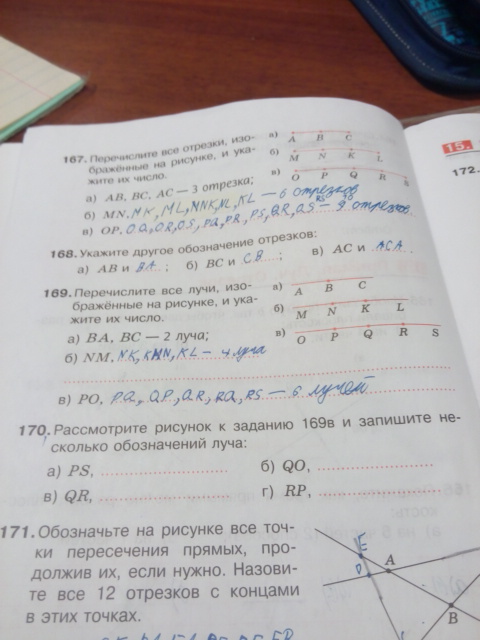 167. Перечислите все отрезки, изо-
бражённые на рисунке, и ука-
жите их число.
а) A B C
б) M N K L
в) O P Q R S
а) AB, BC, AC — 3 отрезка;
б) MN, MK, ML, NK, NL, KL — 6 отрезков
в) OP, OQ, OR, OS, PQ, PR, PS, QR, QS RS — 9 отрезков.
168. Укажите другое обозначение отрезков:
а) AB и BA ; б) BC и CB ; в) AC и
169. Перечислите все лучи, изо-
бражённые на рисунке, и ука-
жите их число.
а) A B C
б) M N K L
в) O P Q R S
а) BA, BC — 2 луча;
б) NM, NK, KL — 4 луча
в) PO, PQ, QP, QR, RQ, RS — 6 лучей
170. Рассмотрите рисунок к заданию 169в и запишите не-
сколько обозначений луча:
а) PS, б) QO,
в) QR, г) RP,
171. Обозначьте на рисунке все точ-
ки пересечения прямых, про-
должив их, если нужно. Назови-
те все 12 отрезков с концами
в этих точках.
E
D A
B
15.
172.